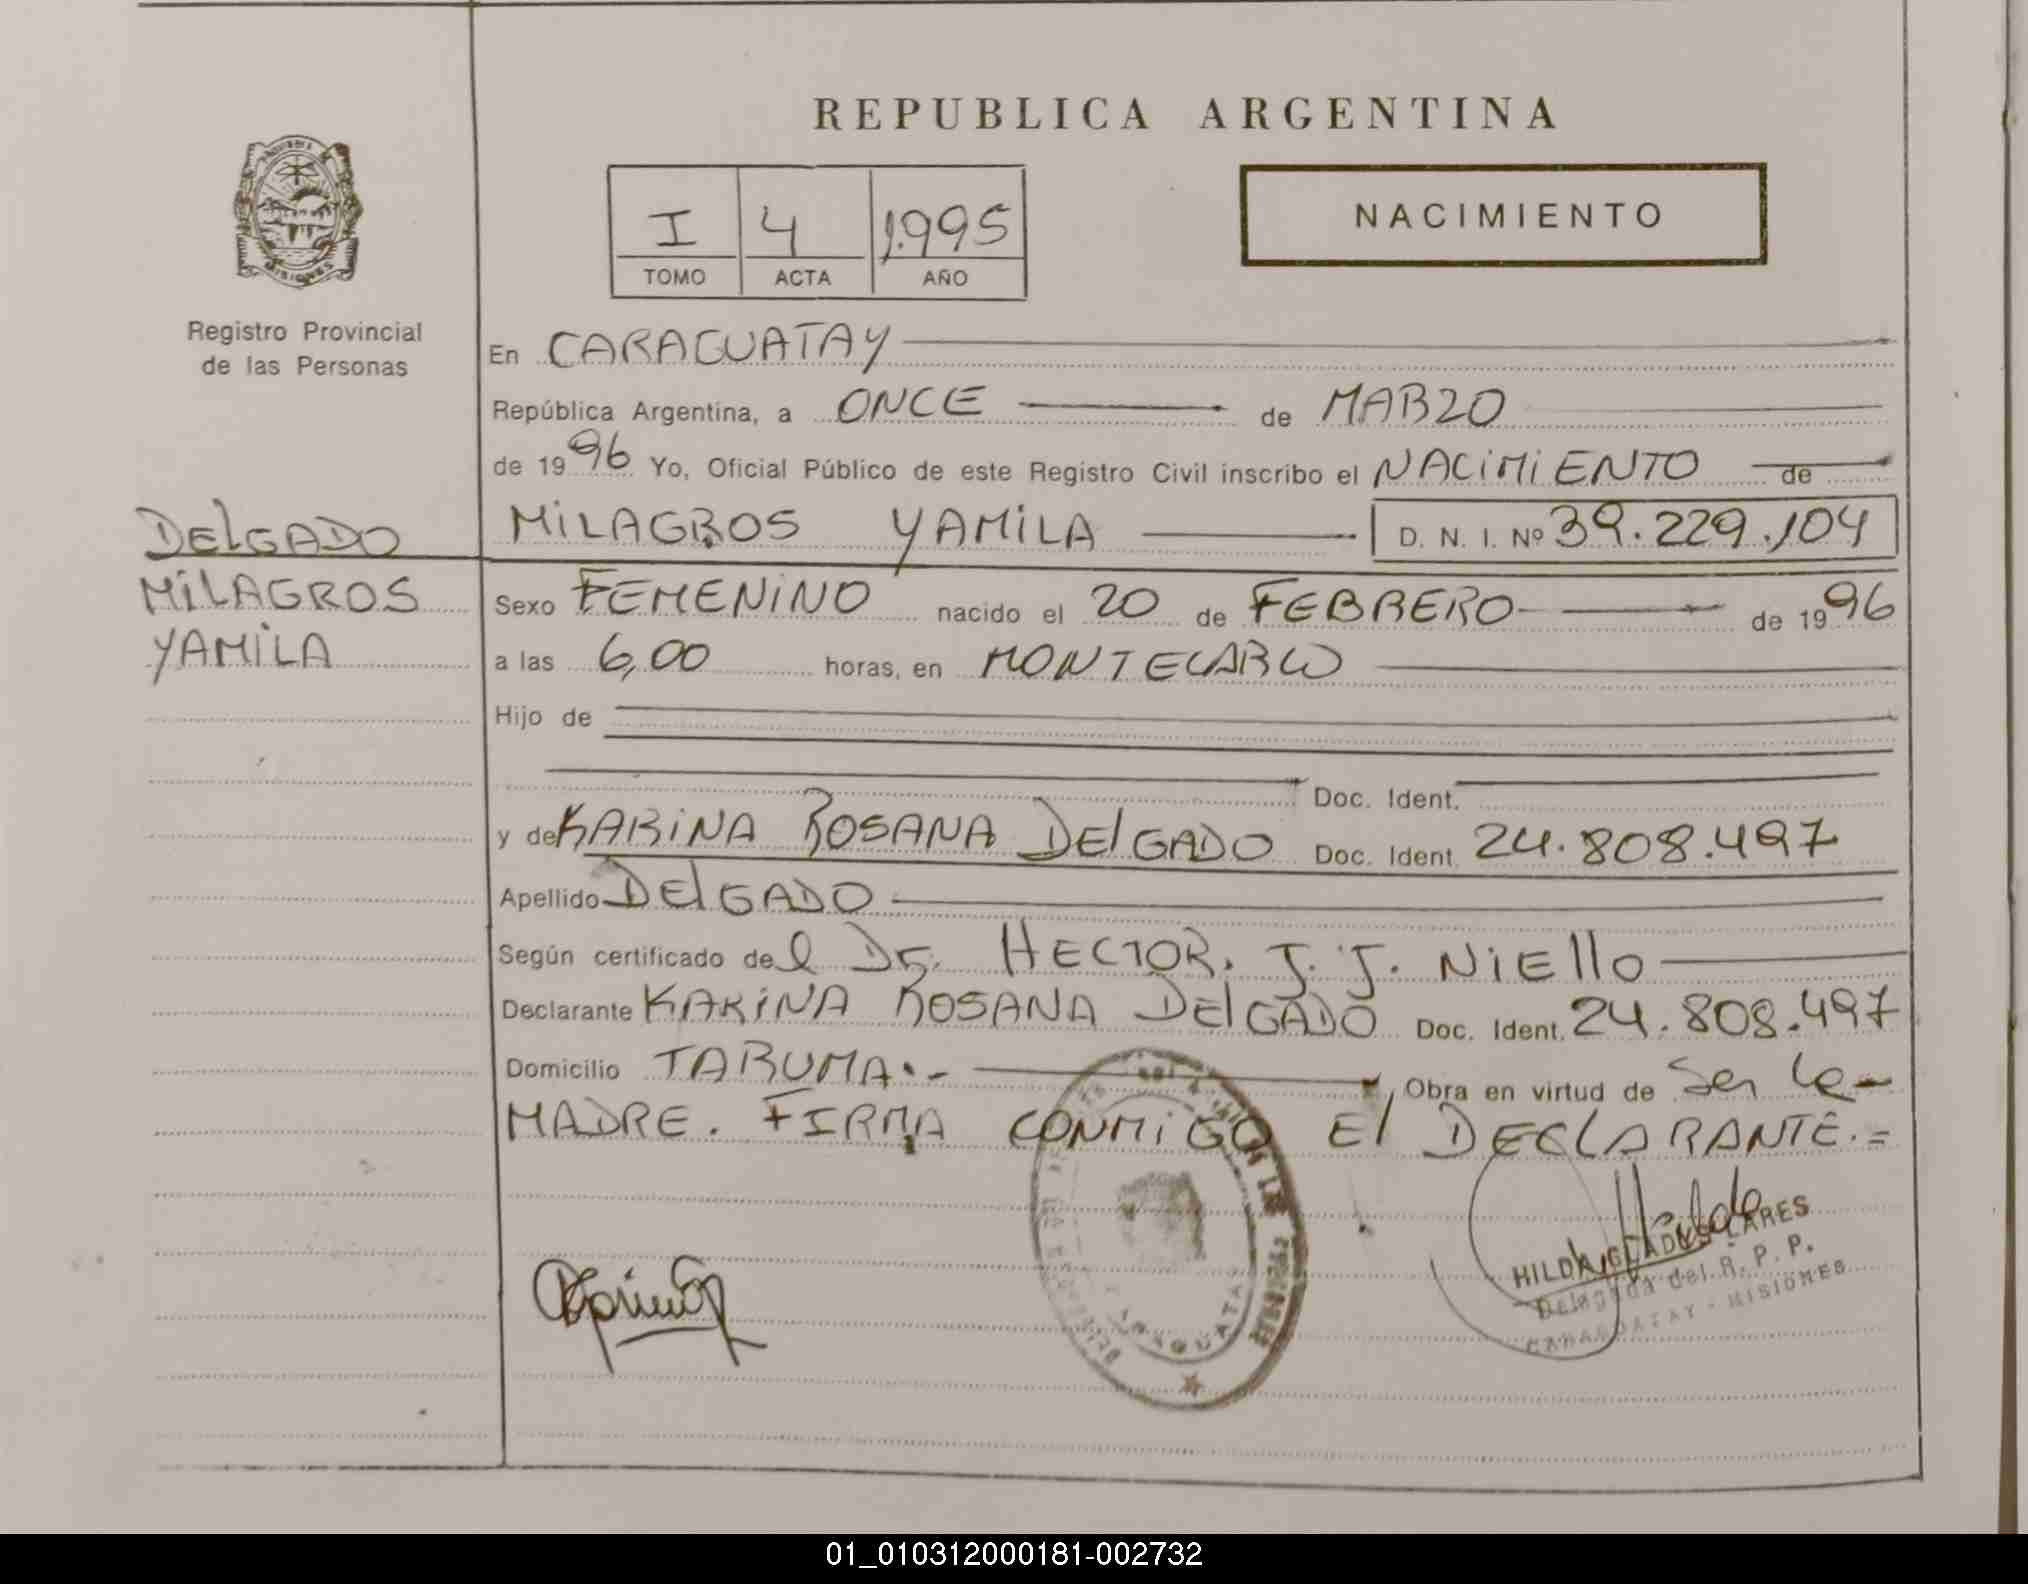 REPUBLICA ARGENTINA
I 4 1.995
TOMO ACTA AÑO
NACIMIENTO
MISIONES
Registro Provincial
de las Personas
DELGADO
MILAGROS
YAMILA
En CARAGUATAY
República Argentina, a ONCE de MARZO
de 1996 Yo, Oficial Público de este Registro Civil inscribo el NACIMIENTO de
MILAGROS YAMILA D. N. I. Nº 39.229.104
Sexo FEMENINO nacido el 20 de FEBRERO de 1996
a las 6,00 horas, en MONTECARLO
Hijo de
Doc. Ident.
y de KARINA ROSANA DELGADO Doc. Ident. 24.808.497
Apellido DELGADO
Según certificado del Dr. HECTOR. J. J. NIELLO
Declarante KARINA ROSANA DELGADO Doc. Ident. 24.808.497
Domicilio TARUMA.- Obra en virtud de Ser la
MADRE. FIRMA CONMIGO El DECLARANTE.=
HILDA GLADYS LARES
Delegada del R. P. P.
CARAGUATAY - MISIONES
01_010312000181-002732